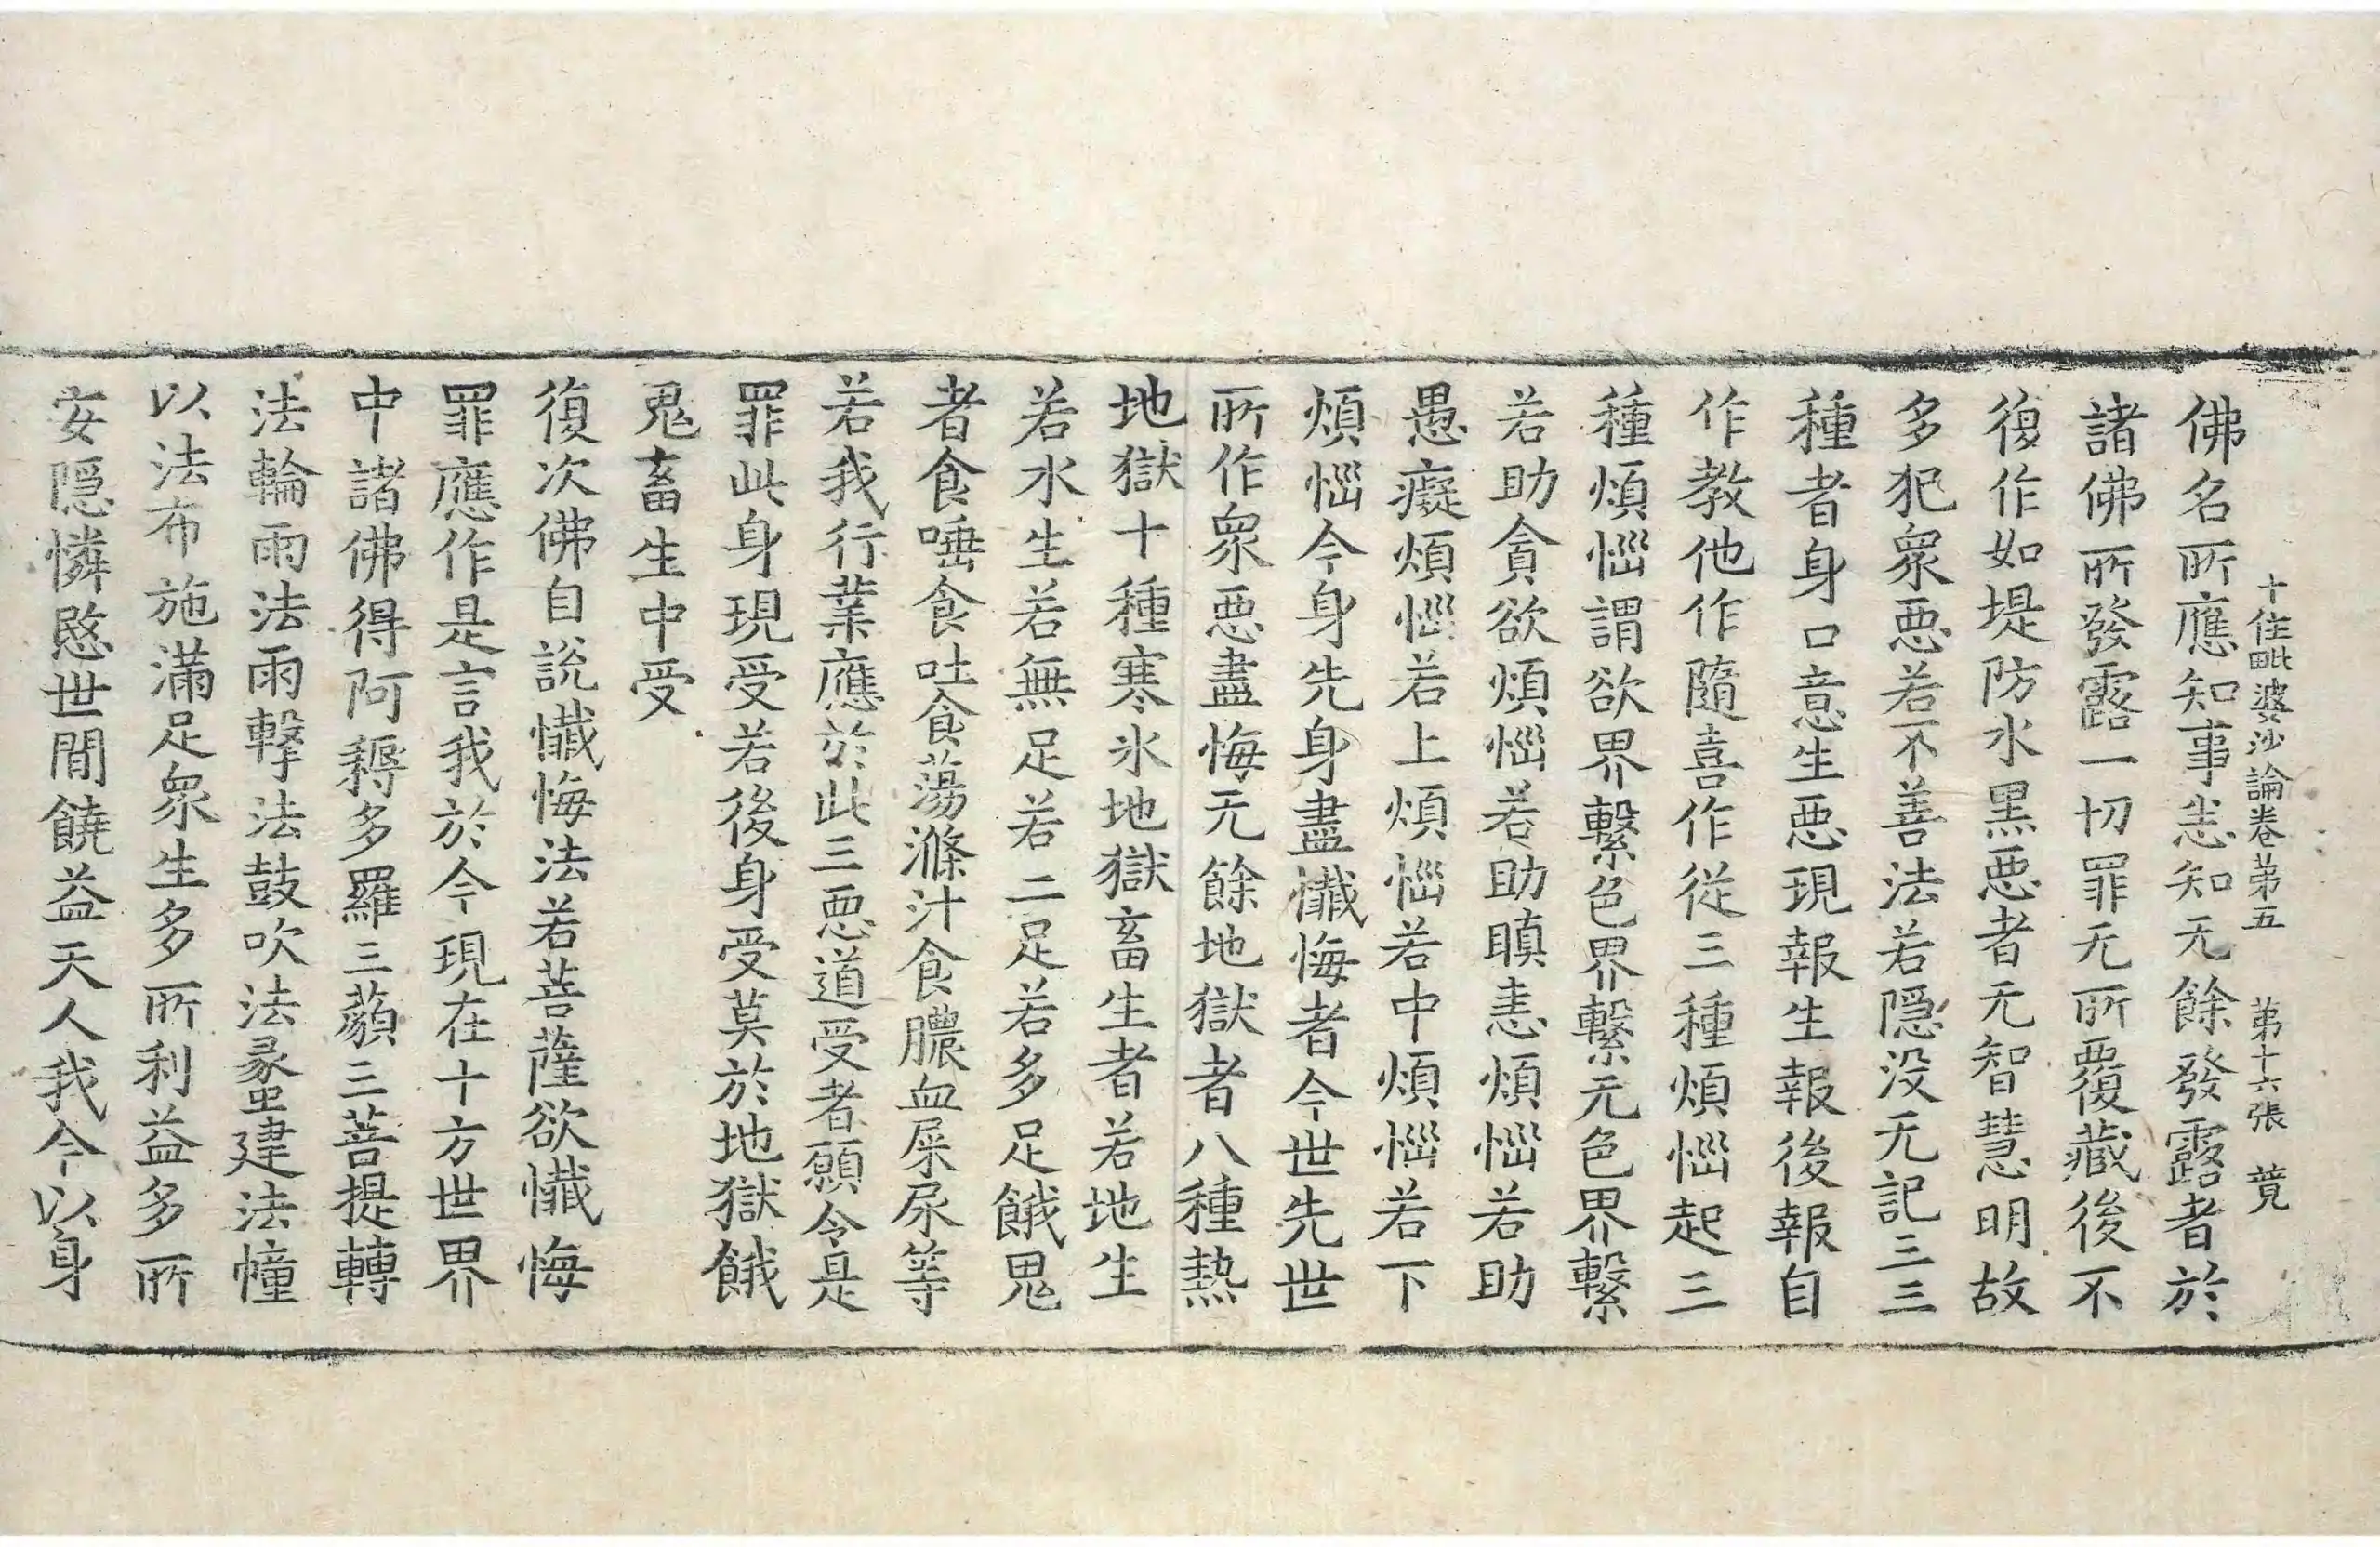 十住毗婆沙論卷苐五　苐十六張　蕳
佛名所應知事恙知无餘發露者於
諸佛所發露一切罪无所覆藏後不
復作如堤防水黑惡者无智慧明故
多犯衆惡若不善法若隠没无記三三
種者身口意生惡現報生報後報自
作教他作隨喜作從三種煩惱起三
種煩惱謂欲界繫色界繫无色界繫
若助貪欲煩惱若助瞋恚煩惱若助
愚癡煩惱若上煩惱若中煩惱若下
煩惱今身先身盡懺悔者今世先世
所作衆惡盡悔无餘地獄者八種熱
地獄十種寒氷地獄畜生者若地生
若水生若無足若二足若多足餓鬼
者食唾食吐食蕩滌汁食膿血屎尿等
若我行業應於此三惡道受者願令是
罪此身現受若後身受莫於地獄餓
鬼畜生中受
復次佛自說懺悔法若菩薩欲懺悔
罪應作是言我於今現在十方世界
中諸佛得阿耨多羅三藐三菩提轉
法輪雨法雨擊法鼓吹法蠡建法幢
以法布施滿足衆生多所利益多所
安隠憐愍世間饒益天人我今以身